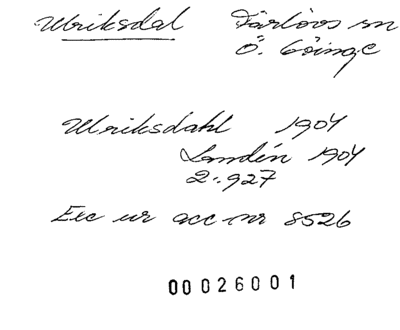 Ulriksdal Färlövs sn
Ö. Göinge
Ulriksdahl 1904
Sandén 1904
2:927
Exc ur acc nr 8526
00026001